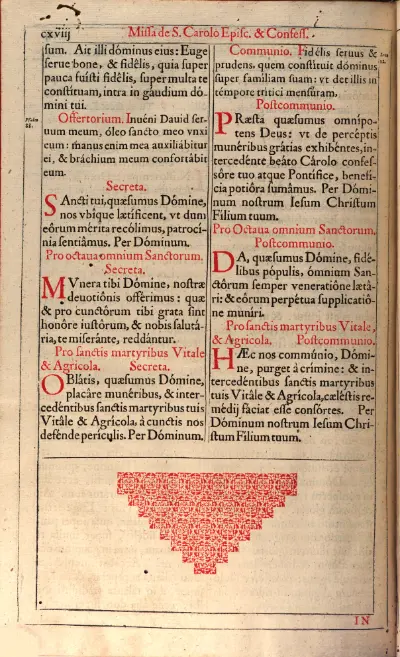 cxviij
Missa de S. Carolo Episc. & Confess.
sum. Ait illi dóminus eius: Euge
serue bone, & fidélis, quia super
pauca fuísti fidélis, super multa te
constítuam, intra in gáudium dó-
mini tui.
Offertorium. Inuéni Dauid ser-
uum meum, óleo sancto meo vnxi
eum: manus enim mea auxiliábitur
ei, & bráchium meum confortábit
eum.
Secreta.
SAncti tui, quæsumus Dómine,
nos vbíque lætíficent, vt dum
eórum mérita recólimus, patrocí-
nia sentiámus. Per Dóminum.
Pro octaua omnium Sanctorum.
Secreta.
MVnera tibi Dómine, nostræ
deuotiónis offérimus: quæ
& pro cunctórum tibi grata sint
honóre iustórum, & nobis salutá-
ria, te miseránte, reddántur.
Pro sanctis martyribus Vitale
& Agricola. Secreta.
OBlátis, quæsumus Dómine,
placáre munéribus, & inter-
cedéntibus sanctis martyribus tuis
Vitále & Agrícola, à cunctis nos
defénde perículis. Per Dóminum.
Communio. Fidélis seruus &
prudens, quem constítuit dóminus
super famíliam suam: vt det illis in
témpore trítici mensúram.
Postcommunio.
PRæsta quæsumus omnípo-
tens Deus: vt de percéptis
munéribus grátias exhibéntes, in-
tercedénte beáto Cárolo confes-
sóre tuo atque Pontífice, benefí-
cia potióra sumámus. Per Dómi-
num nostrum Iesum Christum
Fílium tuum.
Pro Octaua omnium Sanctorum.
Postcommunio.
DA, quæsumus Dómine, fidé-
libus pópulis, ómnium San-
ctórum semper veneratióne lætá-
ri: & eórum perpétua supplicatió-
ne muníri.
Pro sanctis martyribus Vitale,
& Agricola. Postcommunio.
HÆc nos commúnio, Dómi-
ne, purget à crímine: & in-
tercedéntibus sanctis martyribus
tuis Vitále & Agrícola, cæléstis re-
médij fáciat esse consórtes. Per
Dóminum nostrum Iesum Chri-
stum Fílium tuum.
IN